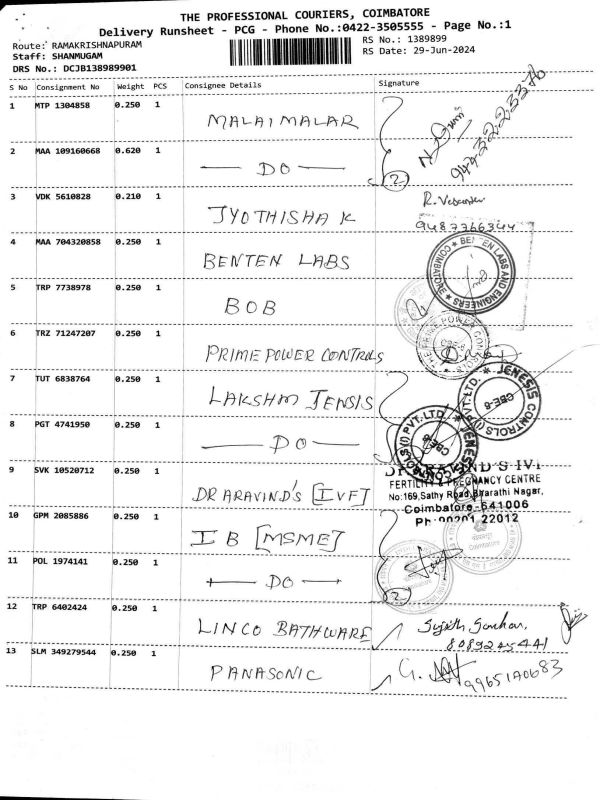 THE PROFESSIONAL COURIERS, COIMBATORE
Delivery Runsheet - PCG - Phone No.:0422-3505555 - Page No.:1
Route: RAMAKRISHNAPURAM
RS No.: 1389899
Staff: SHANMUGAM
RS Date: 29-Jun-2024
DRS No.: DCJB138989901
S No Consignment No Weight PCS Consignee Details Signature
1 MTP 1304858 0.250 1 MALAIMALAR
2 MAA 109160668 0.620 1 — DO — 2
3 VDK 5610828 0.210 1 JYOTHISHA K
9487766344
4 MAA 704320858 0.250 1 BENTEN LABS
BENTEN LABS AND ENGINEERS ★ COIMBATORE ★
5 TRP 7738978 0.250 1 BOB
6 TRZ 71247207 0.250 1 PRIME POWER CONTROLS
PRIME POWER CONTROLS
CBE-6
7 TUT 6838764 0.250 1 LAKSHMI JENSIS
JENESIS CONTROLS (I) PVT.LTD. ★
CBE-6
8 PGT 4741950 0.250 1 — DO —
JENESIS CONTROLS (I) PVT.LTD
CBE-6
9 SVK 10520712 0.250 1 DR ARAVIND'S [IVF]
DR ARAVIND'S IVF
FERTILITY & PREGNANCY CENTRE
No:169,Sathy Road,Bharathi Nagar,
Coimbatore-641006
Ph: 22012
10 GPM 2085886 0.250 1 I B [MSME]
Coimbatore
11 POL 1974141 0.250 1 — DO — 2
12 TRP 6402424 0.250 1 LINCO BATHWARE
8089245441
13 SLM 349279544 0.250 1 PANASONIC
G.